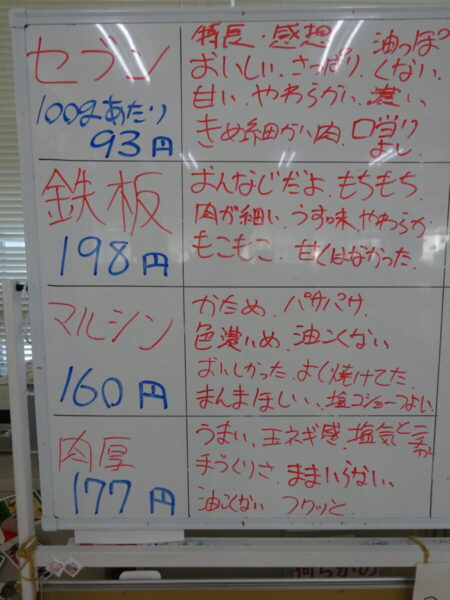 セブン
100gあたり
93円
特長・感想
おいしい、さっぱり、油っぽくない、
甘い、やわらかい、濃い、
きめ細かい肉、口当り
よし、
鉄板
198円
おんなじだよ、もちもち、
肉が細い、うす味、やわらか
もこもこ、甘くはなかった、
マルシン
160円
かため、パサパサ、
色濃いめ、油こくない
おいしかった、よく焼けてた、
まんまほしい、塩コショーつよい
肉厚
177円
うまい、玉ネギ感、塩気と
手づくりさ、ままいらない、
油こくない フワッと